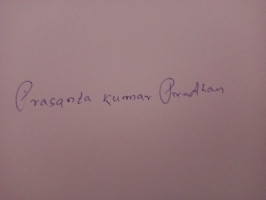 Prasanta kumar Pradhan